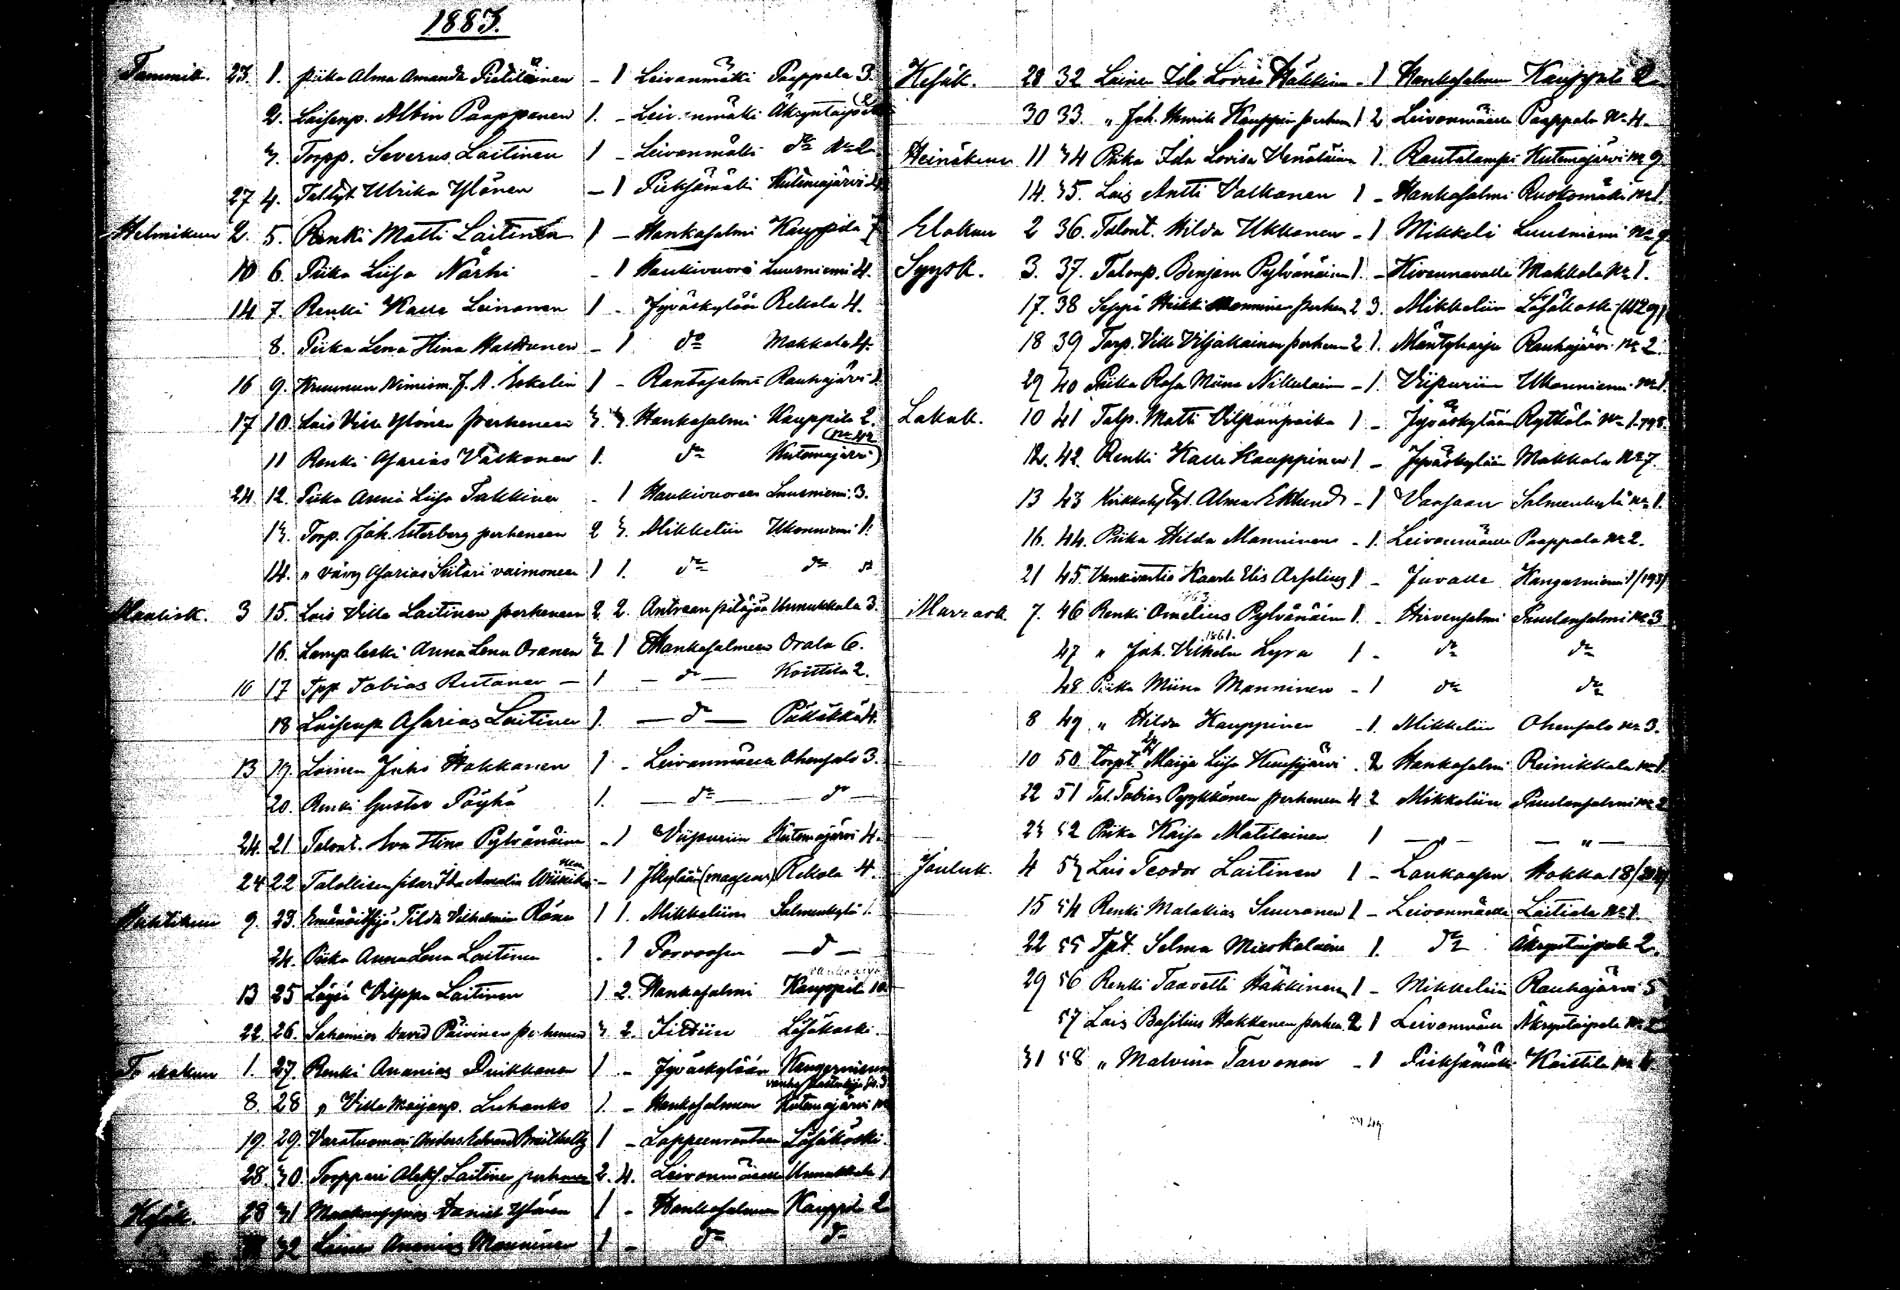 1883.
Tammik. 23. 1. piika Alma Amanda Pietiläinen - 1 Leivonmäki Paappala 3.
2. Loisenp. Albin Paappanen 1. - Leivonmäki Äkryntaipale
3. Torpp. Severus Laitinen 1 - Leivonmäki do No 2
27 4. Tal. tyt. Ulrika Ylönen - 1 Pieksämäki Kutemajärvi 4.
Helmikuu 2. 5. Renki Matti Laitinen 1 - Hankasalmi Kauppila 7
10 6. Piika Liisa Närhi - 1 Haukivuori Luusniemi 4.
14 7. Renki Kalle Leinonen 1 - Jyväskylään Rekola 4.
8. Piika Lena Stina Halttunen - 1 do Makkola 4.
16 9. Kruunun nimism. J. A. Eskelin 1 - Rantasalmi Rauhajärvi 1
17 10 Lois Ville Ylönen perheneen 3. 3 Hankasalmi Kauppila 2.
11 Renki Asarias Valkonen 1. do Kutemajärvi No 42
24 12. Piika Anna Liisa Takkinen - 1 Haukivuoreen Luusniemi 3.
13. Torp. Joh. Esterberg perheneen 2 3. Mikkeliin Ukonniemi 1.
14. " väry Asarias Siitari vaimoneen 1 1. do do do
Maalisk. 3 15. Lois Ville Laitinen perheneen 2 2. Antrean pitäjää Unnukkala 3.
16. Lampleski Anna Lena Oranen 3 1 Hankasalmeen Orala 6.
10 17 Tpp Tobias Rutanen - 1 - do - Koittila 2.
18 Loisenp Asarias Laitinen 1. - do - Pitkäkkä 4.
13 19. Loinen Juho Hokkanen 1 - Leivonmäelle Ohensalo 3.
20. Renki Gustav Pöyhä 1. - do - - do -
24. 21 Talont. Eva Stina Pylvänäinen - 1 Viipuriin Kutemajärvi 4.
24 22 Talollisen sisar Ida Amalia - 1 Jkylään (maaseur.) Rekola 4.
Huhtikuu 9. 23. Tilda Vilhelmin Röna 1 1. Mikkeliin Salmenkylä 1.
24. Piika Anna Lena Laitinen - 1 Porvoosen - d -
13 25 Löysä Vilppu Laitinen 1 2. Hankasalmi Kauppila 10
22. 26. David Päivinen perheneen 3 2. Läsäkoski
Toukokuu 1. 27. Renki Ananias Puikkonen 1 - Jyväskylään Kangasniemi
8. 28 " Ville Maijanp. Luhanko 1. - Hankasalmen Kutemajärvi No
19. 29. Varatuomari Anders Edvard 1 - Lappeenrantaan Läsäkoski.
28. 30. Torppari Aleks. Laitinen perheneen 2. 4. Leivonmäelle Unnukkala 1
Kesäk. 28 31 Daniel Ylönen 1 - Hankasalmen Kauppila 2
32 Loinen Ananias Manninen 1 - do do
Kesäk. 28 32 Loinen Ida Lovisa Häkkinen - 1 Hankasalmen Kauppila 2
30 33. " Joh. Henrik Kauppin perheen 1 2 Leivonmäelle Paappala No 4.
Heinäkuu 11 34 Piika Ida Lovisa Venäläinen 1. Rautalampi Kutemajärvi No 9.
14. 35. Lois Antti Valkonen 1 - Hankasalmi Ruokomäki No 1.
Elokuu 2 36. Talont. Hilda Ukkonen - 1 Mikkeli Luusniemi No 9
Syysk. 3. 37. Talonp. Benjam Pylvänäinen 1. - Makkola No 1.
17. 38 Seppä Heikki Manninen perhen 2 3. Mikkeliin Läsäkoski
18 39 Torp. Ville Viljakainen perheen 2 1. Mäntyharju Rauhajärvi No 2.
29 40 Piika Rosa Miina Nikulain - 1. Viipuriin Ukonniemi No 1.
Lokak. 10 41 Talp. Matti Vilpunpoika 1 - Jyväskylään Rytkölä No 1.
12. 42. Renki Kalle Kauppinen 1 - Jyväskylään Makkola No 7.
13 43 Alma Eklund - 1 Vaasaan Salmenkylä No 1.
16. 44. Piika Hilda Manninen - 1. Leivonmäelle Paappala No 2.
21 45. Vankivartia Kaarle Elis Arselius 1 - Juvalle Kangasniemi
Marrask. 7. 46 Renki Ornelius Pylvänäinen 1. - Hirvensalmi Puulansalmi No 3
1861.
47 " Joh. Vilhelm Lyra 1 - do do
48 Piika Miina Manninen - 1 do do
8 49. " Hilda Kauppinen - 1. Mikkeliin Ohensalo No 3.
10 50 Torpt. Maija Liisa Kuusijärvi . 2 Hankasalmi Reinikkala No 1
22 51 Tal. Tobias Pyykkönen perheneen 4 2 Mikkeliin Puulansalmi No 2
23 52 Piika Kaisa Matilainen 1 - " - - " -
Jouluk. 4 53 Lois Teodor Laitinen 1 - Laukaasen Hokka 18
15 54 Renki Malakias Suuronen 1 - Leivonmäelle Laitiala No 1.
22 55 Tpt. Selma Mieskolainen 1. do Äkryntaipale 2.
29 56 Renki Taavetti Häkkinen 1 - Mikkeliin Rauhajärvi 5
57 Lois Basilius Hokkanen perheen 2 1 Leivonmäelle Äkryntaipale No 2
31 58 " Malvina Tarvonen - 1 Pieksämäki Koittila No 4.